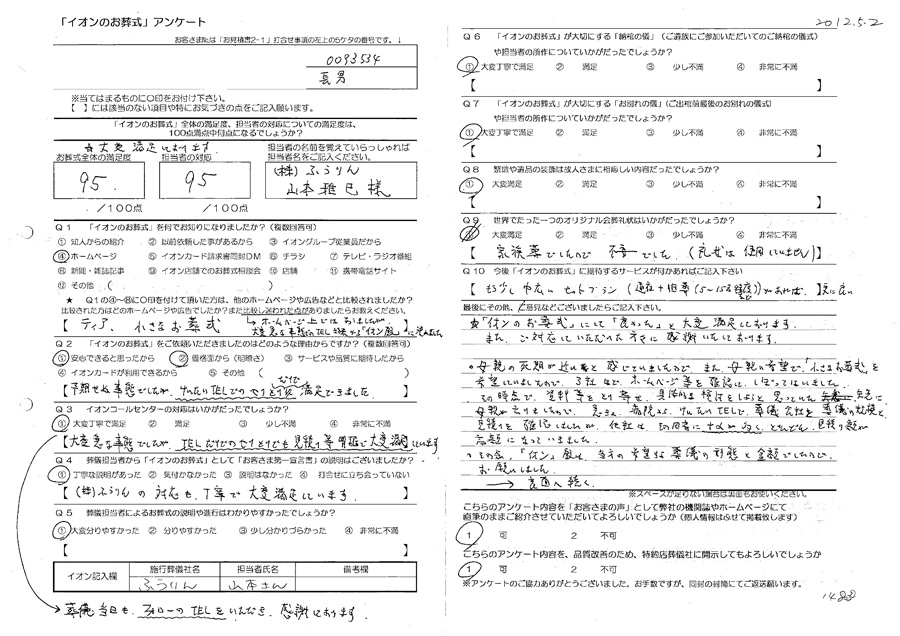 「イオンのお葬式」アンケート
お客さま№は「お見積書2-1」打合せ事項の左上の5ケタの番号です。↓
0093534
長男
※当てはまるものに○印をお付け下さい。
【 】には該当のない項目や特にお気づきの点をご記入願います。
「イオンのお葬式」全体の満足度、担当者の対応についての満足度は、
100点満点中何点になるでしょうか？
★大変満足しております。
お葬式全体の満足度 担当者の対応
担当者の名前を覚えていらっしゃれば
担当者名をご記入ください。
95. 95
(株)ふうりん
山本雅巳様
/100点 /100点
Q1 「イオンのお葬式」を何でお知りになりましたか？（複数回答可）
① 知人からの紹介 ② 以前依頼した事があるから ③ イオングループ従業員だから
④ ホームページ ⑤ イオンカード請求書同封DM ⑥ チラシ ⑦ テレビ・ラジオ番組
⑧ 新聞・雑誌記事 ⑨ イオン店舗でのお葬式相談会 ⑩ 店舗 ⑪ 携帯電話サイト
⑫ その他 （ ）
★ Q1の④～⑥に○印を付けて頂いた方は、他のホームページや広告などと比較されましたか？
比較された方はどのホームページでしたか？また比較し選われた点がありましたらお教えください。
【 ティア、小さなお葬式
Q2 「イオンのお葬式」をご依頼いただきましたのはどのような理由からですか？（複数回答可）
① 安心できると思ったから ② 価格面から（明瞭さ） ③ サービスや品質に期待したから
④ イオンカードが利用できるから ⑤ その他 （ ）
Q3 イオンコールセンターの対応はいかがだったでしょうか？
① 大変丁寧で満足 ② 満足 ③ 少し不満 ④ 非常に不満
【大変急な事態でしたが、TELだけのやりとりでも見積り等明確で大変満足しています
Q4 葬儀担当者から「イオンのお葬式」として「お客さま第一宣言書」の説明はございましたか？
① 丁寧な説明があった ② 気付かなかった ③ 説明はなかった ④ 打合せに立ち会っていない
【 (株)ふうりんの対応も、丁寧で大変満足しています。 】
Q5 葬儀担当者によるお葬式の説明や進行はわかりやすかったでしょうか？
① 大変分りやすかった ② 分りやすかった ③ 少し分りづらかった ④ 非常に不満
【 】
イオン記入欄 施行葬儀社名 担当者氏名 備考欄
ふうりん 山本さん
→葬儀当日も、フォローのTELをいただき、感謝しております。
2012.5.2
Q6 「イオンのお葬式」が大切にする「納棺の儀」（ご遺族にご参加いただいてのご納棺の儀式）
や担当者の所作についていかがだったでしょうか？
① 大変丁寧で満足 ② 満足 ③ 少し不満 ④ 非常に不満
【 】
Q7 「イオンのお葬式」が大切にする「お別れの儀」（ご出棺前最後のお別れの儀式）
や担当者の所作についていかがだったでしょうか？
① 大変丁寧で満足 ② 満足 ③ 少し不満 ④ 非常に不満
【 】
Q8 祭壇や遺品の装飾は故人さまに相応しい内容だったでしょうか？
① 大変満足 ② 満足 ③ 少し不満 ④ 非常に不満
【 】
Q9 世界でたった一つのオリジナル会葬礼状はいかがだったでしょうか？
大変満足 ② 満足 ③ 少し不満 ④ 非常に不満
【 家族葬でしたので不要でした。（礼状は使用していません）】
Q10 今後「イオンのお葬式」に期待するサービスが何かあればご記入下さい
最後にその他、ご意見などございましたらご記入下さい。
★「イオンのお葬式」にして「良かった」と大変満足しております。
また、ご対応していただいた方々に感謝いたしております。
◦母親の死期が近い事と感じていましたので、また、母親の希望で「小さなお葬式」を
希望していましたので、3社ほど、ホームページ等を確認し、しぼってはいました。
お願いしました。
→裏面へ続く。
※スペースが足りない場合は裏面もお使いください。
こちらのアンケート内容を「お客さまの声」として弊社の機関誌やホームページにて
直筆のままご紹介させていただいてよろしいでしょうか（個人情報はふせて掲載致します）
1 可 2 不可
こちらのアンケート内容を、品質改善のため、特約店葬儀社に開示してもよろしいでしょうか
1 可 2 不可
※アンケートのご協力ありがとうございました。お手数ですが、同封の封筒にてご返送願います。